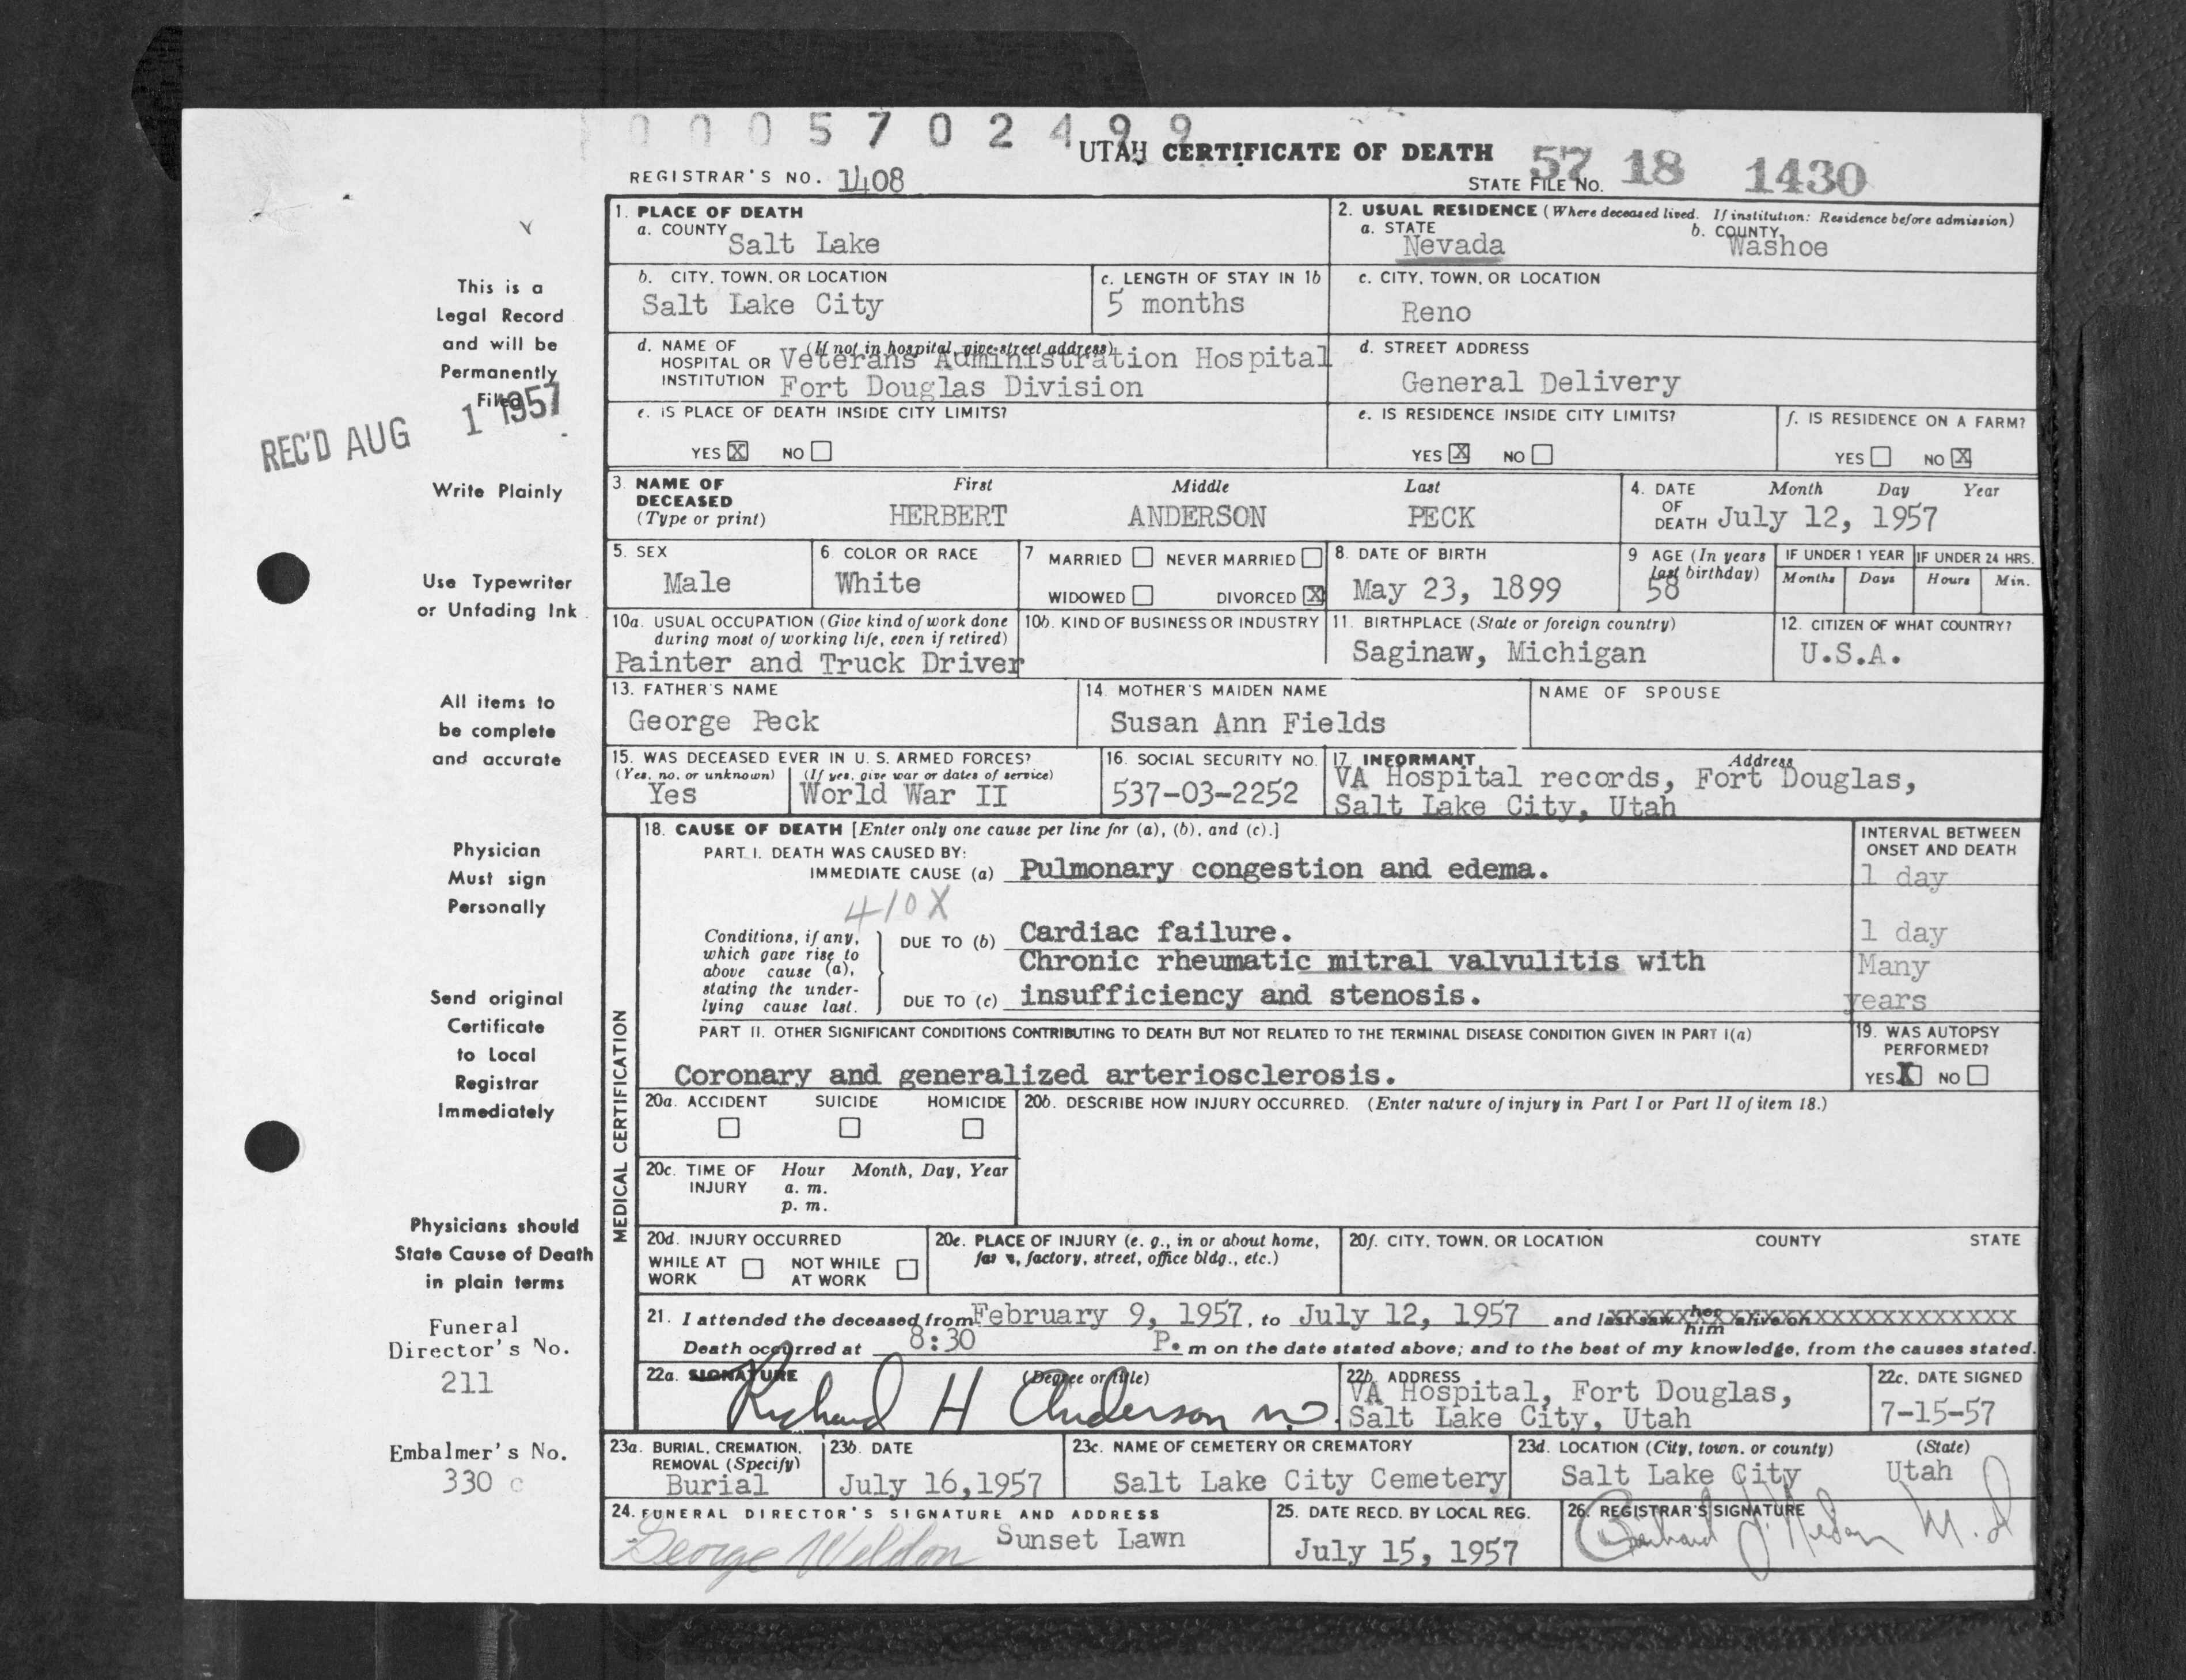 0005702499
UTAH CERTIFICATE OF DEATH
REGISTRAR'S NO. 1408
STATE FILE NO. 57 18 1430
1. PLACE OF DEATH
a. COUNTY Salt Lake
2. USUAL RESIDENCE (Where deceased lived. If institution: Residence before admission)
a. STATE Nevada b. COUNTY Washoe
b. CITY, TOWN, OR LOCATION Salt Lake City
c. LENGTH OF STAY IN 1b 5 months
c. CITY, TOWN, OR LOCATION Reno
d. NAME OF (If not in hospital, give street address)
HOSPITAL OR Veterans Administration Hospital
INSTITUTION Fort Douglas Division
d. STREET ADDRESS
General Delivery
e. IS PLACE OF DEATH INSIDE CITY LIMITS?
YES X NO
e. IS RESIDENCE INSIDE CITY LIMITS?
YES X NO
f. IS RESIDENCE ON A FARM?
YES NO X
3. NAME OF DECEASED (Type or print)
First Middle Last
HERBERT ANDERSON PECK
4. DATE OF DEATH Month Day Year
July 12, 1957
5. SEX
Male
6. COLOR OR RACE
White
7 MARRIED NEVER MARRIED
WIDOWED DIVORCED X
8. DATE OF BIRTH
May 23, 1899
9 AGE (In years last birthday)
58
IF UNDER 1 YEAR
Months Days
IF UNDER 24 HRS.
Hours Min.
10a. USUAL OCCUPATION (Give kind of work done during most of working life, even if retired)
Painter and Truck Driver
10b. KIND OF BUSINESS OR INDUSTRY
11. BIRTHPLACE (State or foreign country)
Saginaw, Michigan
12. CITIZEN OF WHAT COUNTRY?
U.S.A.
13. FATHER'S NAME
George Peck
14. MOTHER'S MAIDEN NAME
Susan Ann Fields
NAME OF SPOUSE
15. WAS DECEASED EVER IN U. S. ARMED FORCES?
(Yes, no, or unknown) (If yes, give war or dates of service)
Yes World War II
16. SOCIAL SECURITY NO.
537-03-2252
17. INFORMANT Address
VA Hospital records, Fort Douglas,
Salt Lake City, Utah
MEDICAL CERTIFICATION
18. CAUSE OF DEATH [Enter only one cause per line for (a), (b), and (c).]
INTERVAL BETWEEN ONSET AND DEATH
PART I. DEATH WAS CAUSED BY:
IMMEDIATE CAUSE (a) Pulmonary congestion and edema. 1 day
410X
Conditions, if any, which gave rise to above cause (a), stating the underlying cause last.
DUE TO (b) Cardiac failure. 1 day
Chronic rheumatic mitral valvulitis with Many
DUE TO (c) insufficiency and stenosis. years
PART II. OTHER SIGNIFICANT CONDITIONS CONTRIBUTING TO DEATH BUT NOT RELATED TO THE TERMINAL DISEASE CONDITION GIVEN IN PART I(a)
Coronary and generalized arteriosclerosis.
19. WAS AUTOPSY PERFORMED?
YES X NO
20a. ACCIDENT SUICIDE HOMICIDE
20b. DESCRIBE HOW INJURY OCCURRED. (Enter nature of injury in Part I or Part II of item 18.)
20c. TIME OF INJURY Hour Month, Day, Year
a. m.
p. m.
20d. INJURY OCCURRED
WHILE AT WORK NOT WHILE AT WORK
20e. PLACE OF INJURY (e. g., in or about home, farm, factory, street, office bldg., etc.)
20f. CITY, TOWN, OR LOCATION COUNTY STATE
21. I attended the deceased from February 9, 1957, to July 12, 1957 and last saw her him alive on
Death occurred at 8:30 P. m on the date stated above; and to the best of my knowledge, from the causes stated.
22a. SIGNATURE (Degree or title)
Richard H Anderson
22b. ADDRESS
VA Hospital, Fort Douglas,
Salt Lake City, Utah
22c. DATE SIGNED
7-15-57
23a. BURIAL, CREMATION, REMOVAL (Specify)
Burial
23b. DATE
July 16,1957
23c. NAME OF CEMETERY OR CREMATORY
Salt Lake City Cemetery
23d. LOCATION (City, town, or county) (State)
Salt Lake City Utah
24. FUNERAL DIRECTOR'S SIGNATURE AND ADDRESS
George Weldon Sunset Lawn
25. DATE RECD. BY LOCAL REG.
July 15, 1957
26. REGISTRAR'S SIGNATURE
M.D
This is a
Legal Record
and will be
Permanently
Filed
REC'D AUG 1 1957
Write Plainly
Use Typewriter
or Unfading Ink
All items to
be complete
and accurate
Physician
Must sign
Personally
Send original
Certificate
to Local
Registrar
Immediately
Physicians should
State Cause of Death
in plain terms
Funeral
Director's No.
211
Embalmer's No.
330 c